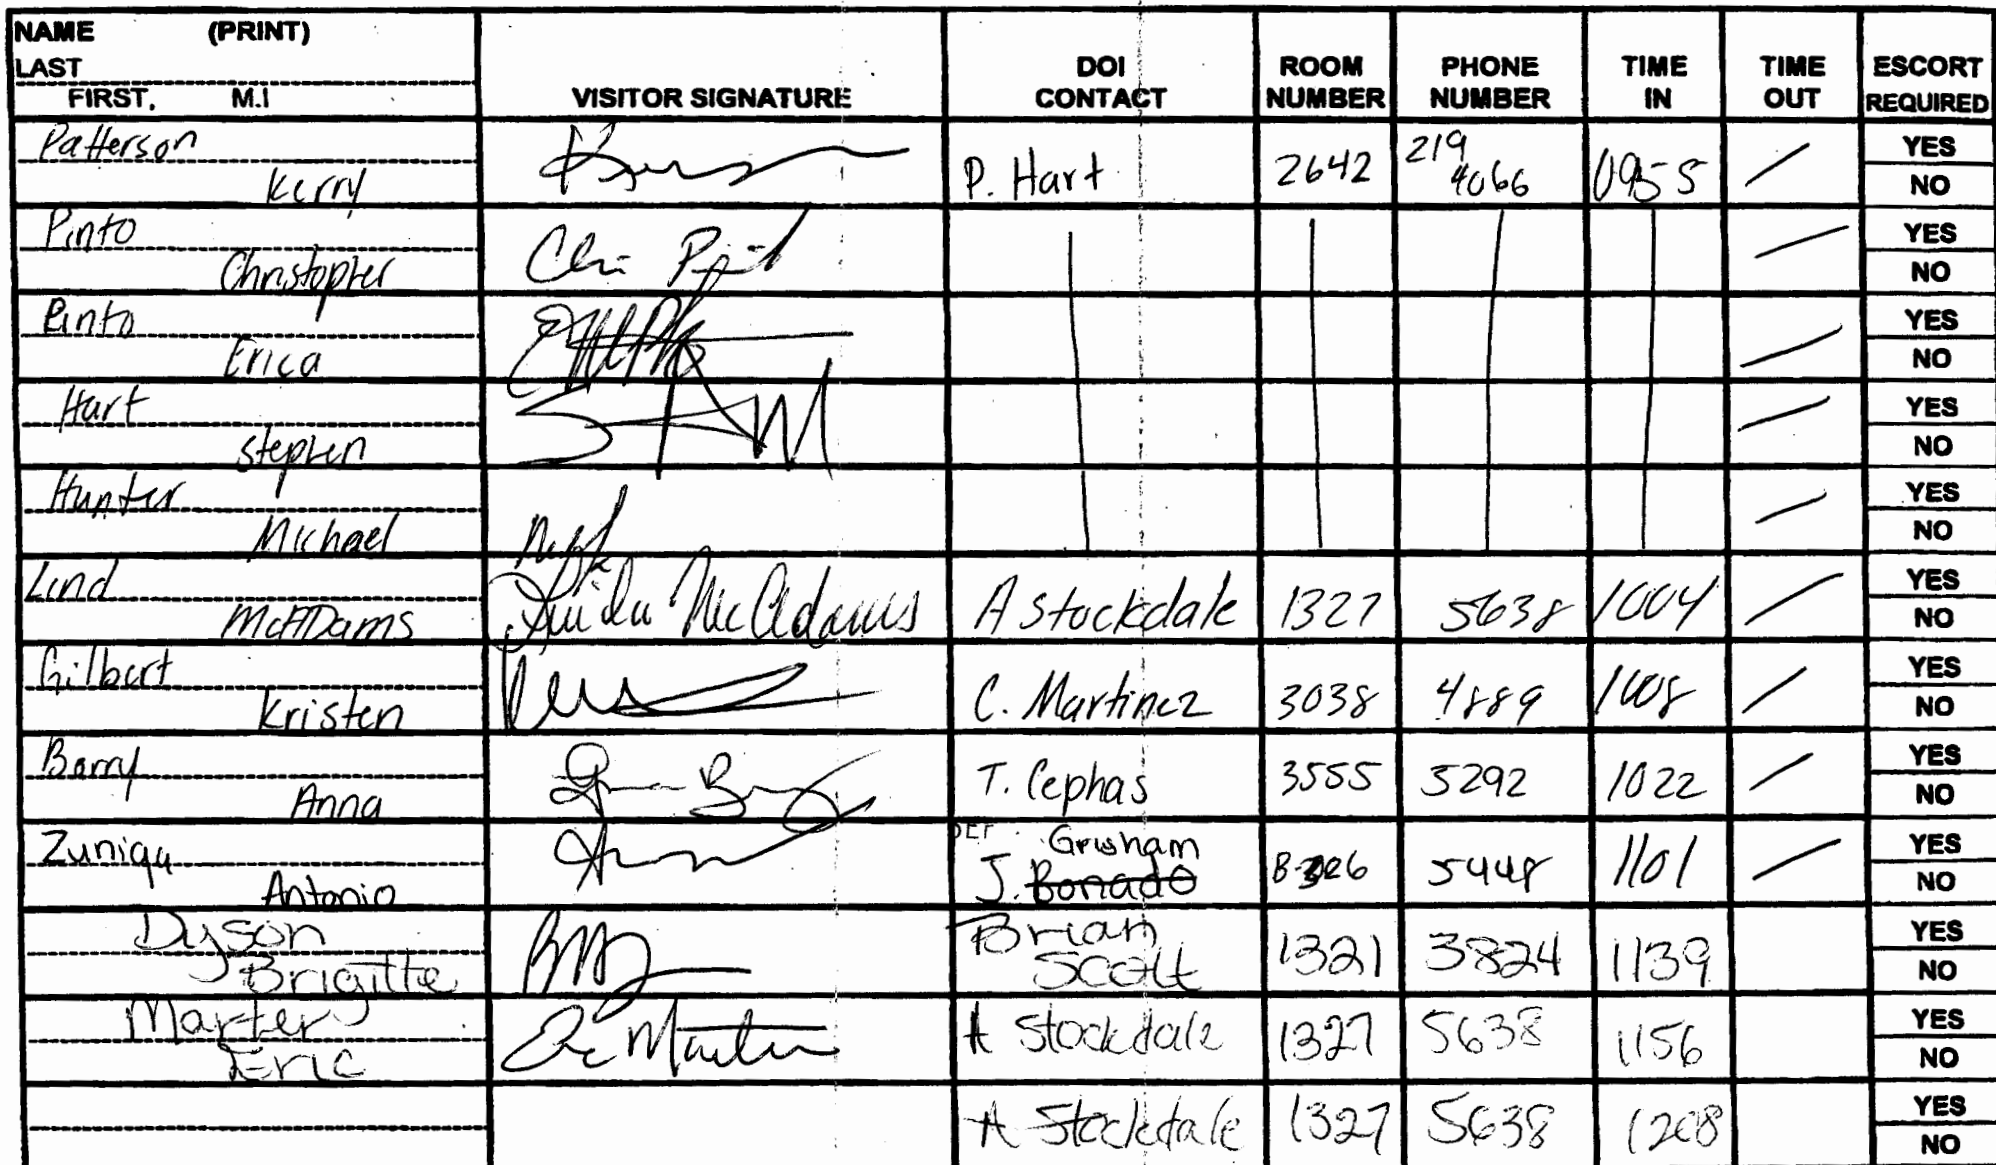 NAME (PRINT)
LAST
FIRST, M.I
VISITOR SIGNATURE
DOI CONTACT
ROOM NUMBER
PHONE NUMBER
TIME IN
TIME OUT
ESCORT REQUIRED
Patterson
Kerry
P. Hart 2642 219 4066 0955 YES NO
Pinto
Christopher
YES NO
Pinto
Erica
YES NO
Hart
Stephen
YES NO
Hunter
Michael
YES NO
Lind
McADams
Linda McAdams A Stockdale 1327 5638 1004 YES NO
Gilbert
Kristen
C. Martinez 3038 4889 1008 YES NO
Barry
Anna
T. Cephas 3555 5292 1022 YES NO
Zuniga
Antonio
Grisham
J. Bonado 5448 1101 YES NO
Dyson
Brigitte
Brian Scott 1321 3824 1139 YES NO
Marter
Eric
A Stockdale 1327 5638 1156 YES NO
A Stockdale 1327 5638 1208 YES NO